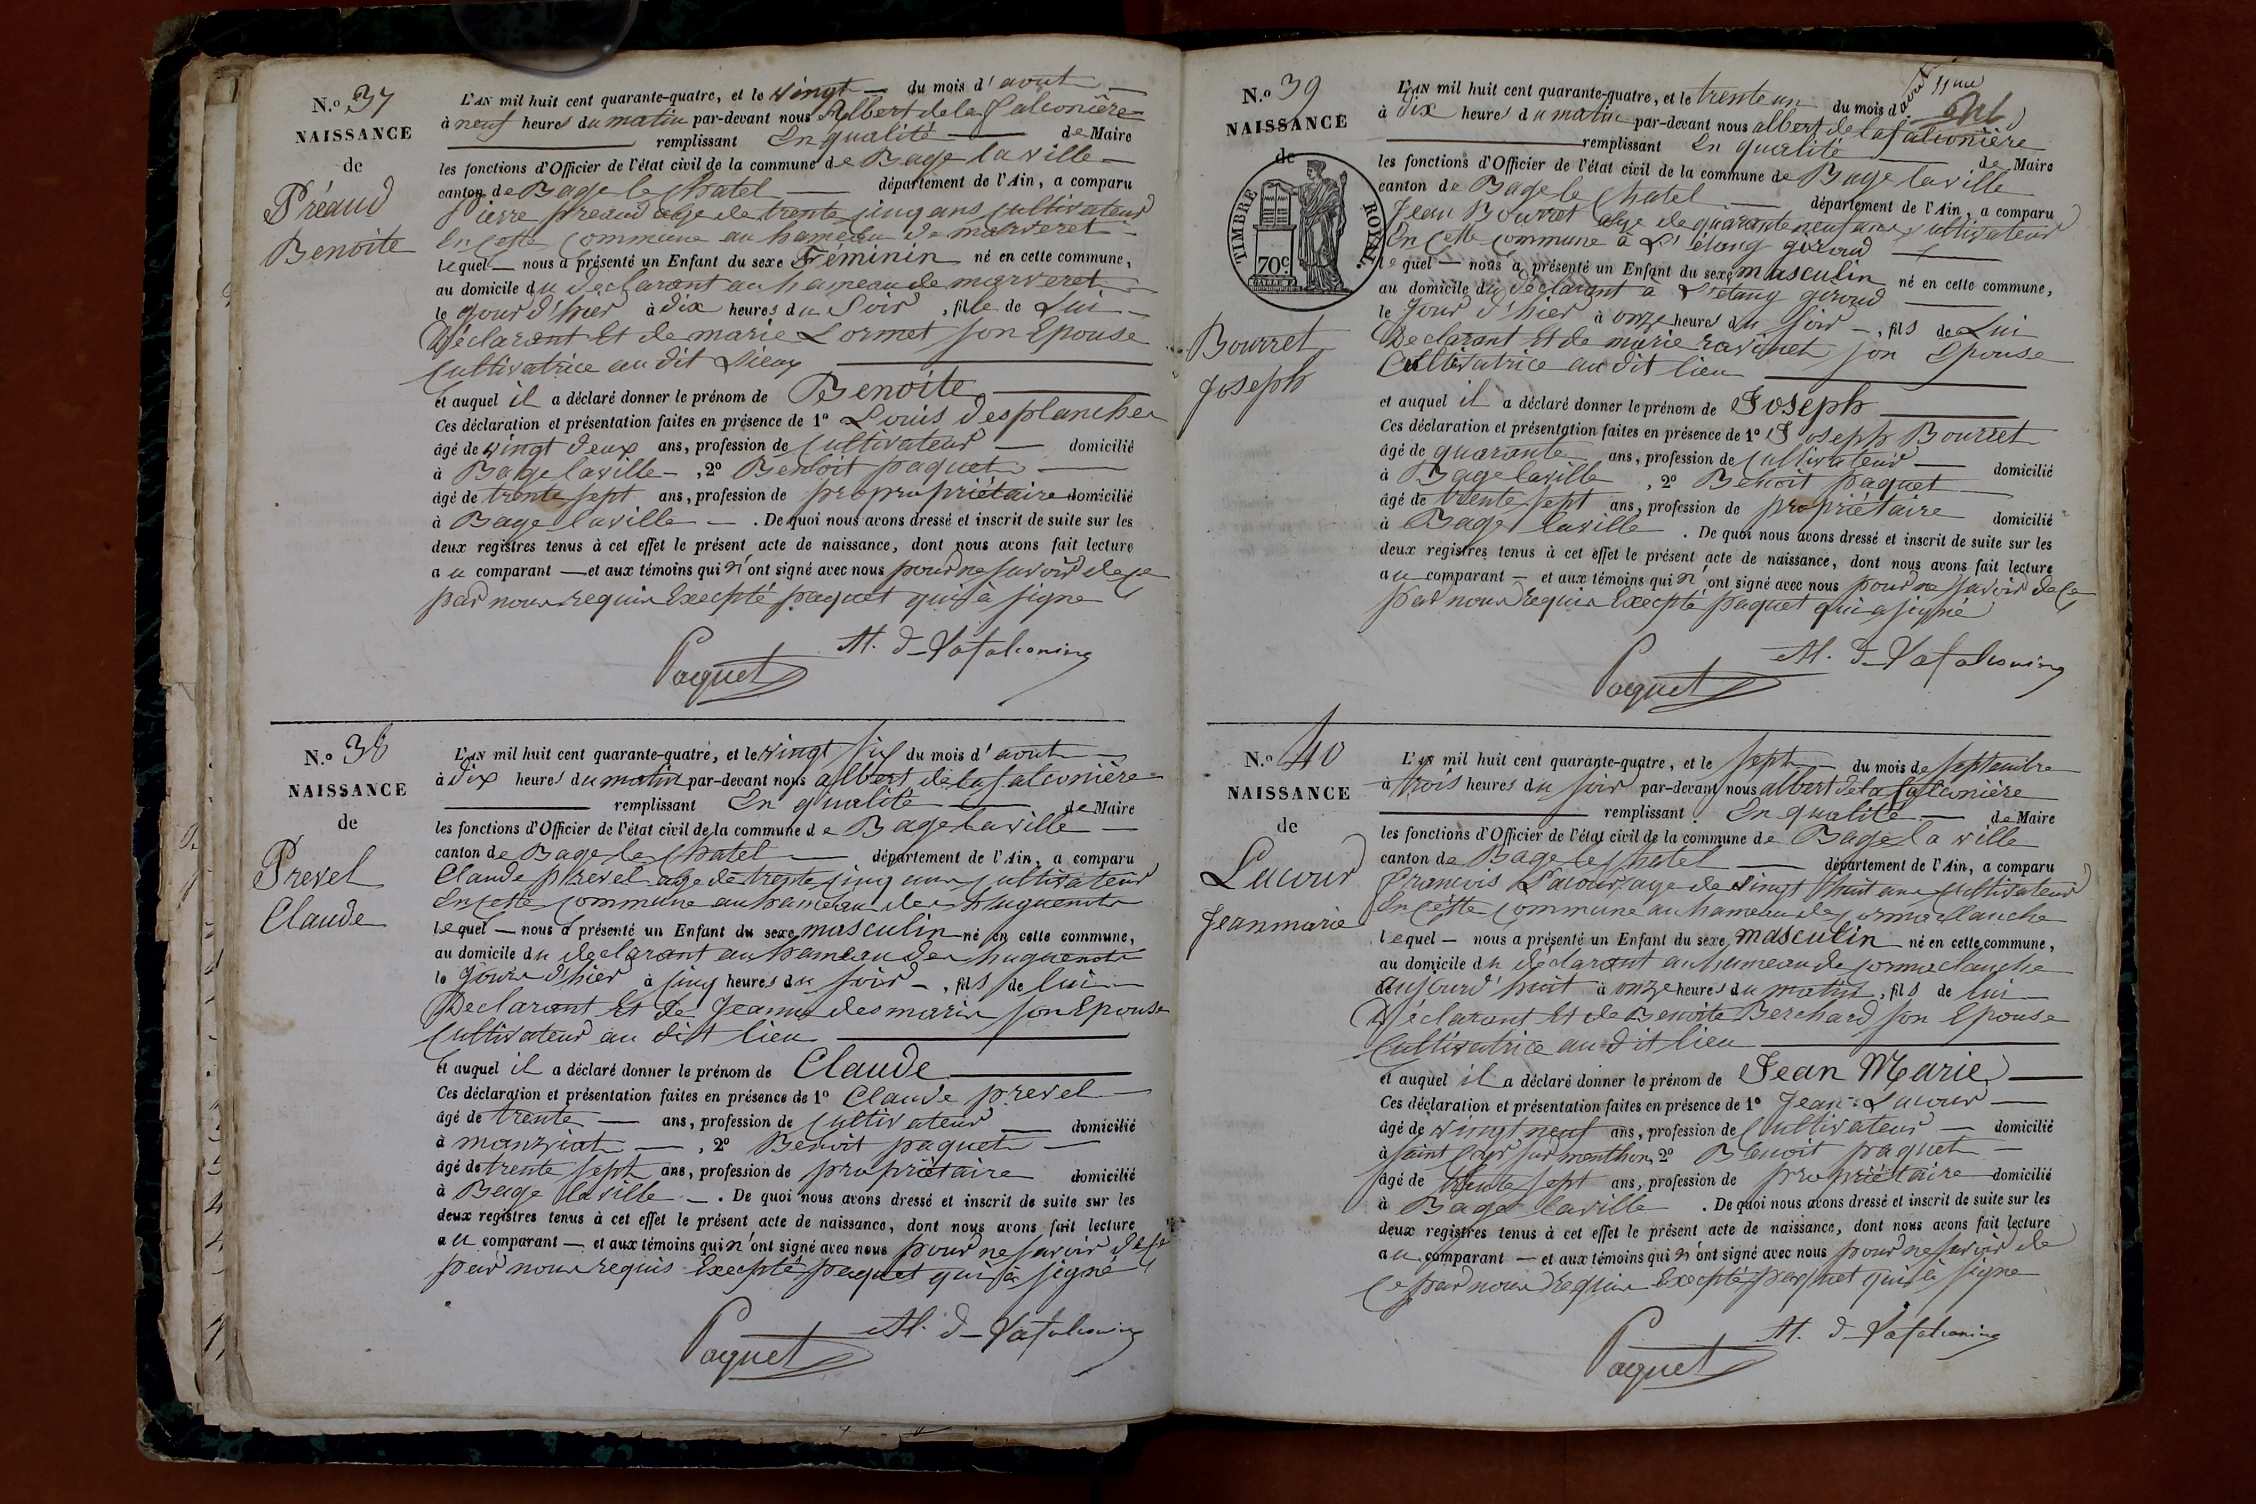 N.o 37
NAISSANCE
de
Préaud
Benoite
L'AN mil huit cent quarante-quatre, et le vingt — du mois d'avout —
à neuf heures du matin par-devant nous Albert de la falconière
remplissant En qualité — de Maire
les fonctions d'Officier de l'état civil de la commune de Bage la ville —
canton de Bage le Chatel — département de l'Ain, a comparu
Pierre preaud age de trente cinq ans Cultivateur
En Cette Commune au hameau de marveret
lequel — nous a présenté un Enfant du sexe Féminin né en cette commune,
au domicile du declarant au hameau de marveret
le Jour d'hier à dix heures du Soir, fille de Lui —
Déclarant Et de marie Lormet son Epouse
Cultivatrice au dit Lieu
et auquel il a déclaré donner le prénom de Benoite
Ces déclaration et présentation faites en présence de 1o Louis desplanches
âgé de vingt deux ans, profession de Cultivateur — domicilié
à Bage laville —, 2o Benoit paquet —
âgé de trente sept ans, profession de propropriétaire domicilié
à Bage laville —. De quoi nous avons dressé et inscrit de suite sur les
deux registres tenus à cet effet le présent acte de naissance, dont nous avons fait lecture
au comparant — et aux témoins qui n'ont signé avec nous pour ne savoir de ce
par nous requis Excepté paquet qui a signe
Paquet Al. d_ Lafalconière
N.o 38
NAISSANCE
de
Prevel
Claude
L'AN mil huit cent quarante-quatre, et le vingt six du mois d'avout —
à dix heures du matin par-devant nous albert de la falconière
remplissant En qualité — de Maire
les fonctions d'Officier de l'état civil de la commune de Bage la ville —
canton de Bage le Chatel — département de l'Ain, a comparu
Claude prevel age de trente cinq ans Cultivateur
En Cette Commune au hameau des huguenots
lequel — nous a présenté un Enfant du sexe masculin né en cette commune,
au domicile du declarant au hameau des huguenots
le Jour d'hier à cinq heures du soir —, fils de lui —
Declarant Et de Jeanne desmaris son Epouse
Cultivateur au dit lieu
et auquel il a déclaré donner le prénom de Claude
Ces déclaration et présentation faites en présence de 1o Claude prevel —
âgé de trente — ans, profession de Cultivateur — domicilié
à manziat —, 2o Benoit paquet —
âgé de trente sept ans, profession de propriétaire domicilié
à Bage laville —. De quoi nous avons dressé et inscrit de suite sur les
deux registres tenus à cet effet le présent acte de naissance, dont nous avons fait lecture
au comparant — et aux témoins qui n'ont signé avec nous pour ne savoir de ce
par nous requis Excepté paquet qui a signé
Paquet Al. d_ Lafalconière
N.o 39
NAISSANCE
de
TIMBRE ROYAL.
70c
Bourret
Joseph
L'AN mil huit cent quarante-quatre, et le trente un du mois d'avout
à dix heures du matin par-devant nous albert de la falconière
remplissant En qualité — de Maire
les fonctions d'Officier de l'état civil de la commune de Bage la ville
canton de Bage le Chatel — département de l'Ain, a comparu
Jean Bourret age de quarante neuf ans Cultivateur
En Cette Commune à L'étang giroud
lequel — nous a présenté un Enfant du sexe masculin né en cette commune,
au domicile du déclarant à L'étang giroud
le Jour d'hier à onze heures du soir —, fils de Lui
Declarant Et de marie ravinet son Epouse
Cultivatrice au dit lieu
et auquel il a déclaré donner le prénom de Joseph
Ces déclaration et présentation faites en présence de 1o Joseph Bourret
âgé de quarante ans, profession de Cultivateur — domicilié
à Bage laville, 2o Benoit paquet —
âgé de trente sept ans, profession de propriétaire domicilié
à Bage laville. De quoi nous avons dressé et inscrit de suite sur les
deux registres tenus à cet effet le présent acte de naissance, dont nous avons fait lecture
au comparant — et aux témoins qui n'ont signé avec nous pour ne savoir de ce
par nous requis Excepté paquet qui a signé
Paquet Al. d_ Lafalconière
N.o 40
NAISSANCE
de
Lacour
Jean marie
L'AN mil huit cent quarante-quatre, et le sept — du mois de septembre
à trois heures du soir par-devant nous albert de la falconière
remplissant En qualité — de Maire
les fonctions d'Officier de l'état civil de la commune de Bage la ville
canton de Bage le Chatel — département de l'Ain, a comparu
francois Lacour age de vingt huit ans Cultivateur
En Cette Commune au hameau de
lequel — nous a présenté un Enfant du sexe masculin né en cette commune,
au domicile du déclarant au hameau de
aujourd'huit à onze heures du matin, fils de lui —
Déclarant Et de Benoite Berchard son Epouse
Cultivatrice au dit lieu
et auquel il a déclaré donner le prénom de Jean Marie
Ces déclaration et présentation faites en présence de 1o Jean Lacour —
âgé de vingt neuf ans, profession de Cultivateur — domicilié
à saint Cyr sur menthon, 2o Benoit paquet —
âgé de trente sept ans, profession de propriétaire domicilié
à Bage laville. De quoi nous avons dressé et inscrit de suite sur les
deux registres tenus à cet effet le présent acte de naissance, dont nous avons fait lecture
au comparant — et aux témoins qui n'ont signé avec nous pour ne savoir de
ce par nous requis Excepté paquet qui a signe
Paquet Al. d_ Lafalconière